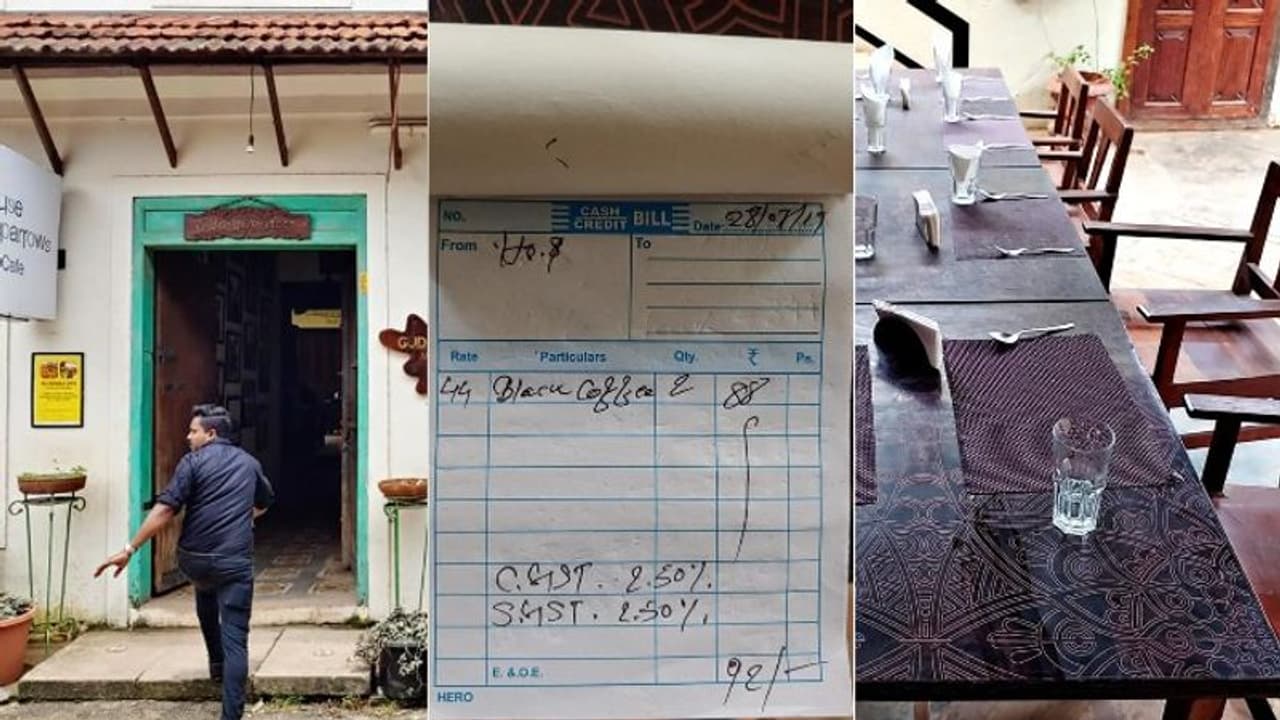 use
parrows
Cafe
GUD
NO.
CASH
CREDIT
BILL
Date: 28/07/19
From
To
Rate Particulars Qty. ₹ Ps.
44 Black Coffee 2 88
C.GST. 2.50%.
S.GST. 2.50%.
E. & O.E. 92/-
HERO